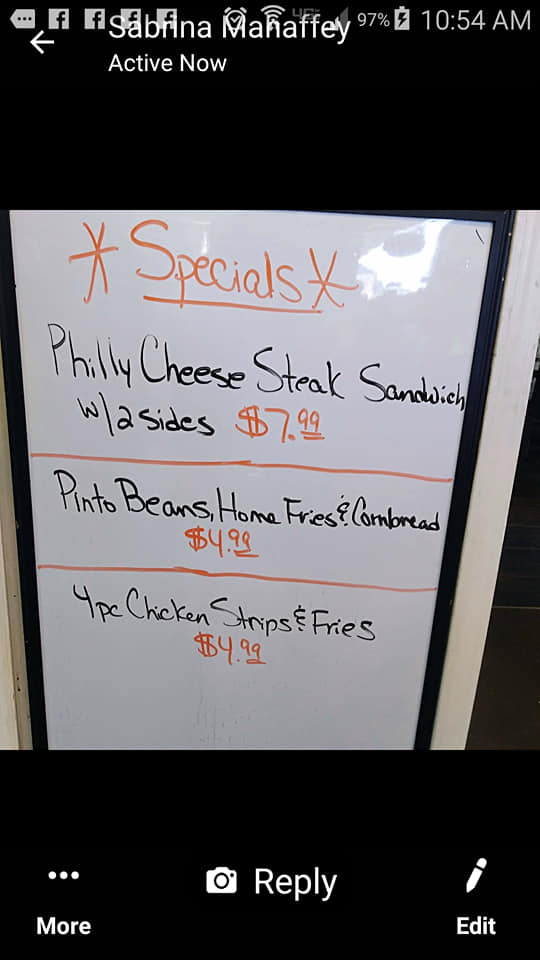 97% 10:54 AM
Sabrina Mahaffey
Active Now
* Specials *
Philly Cheese Steak Sandwich
w/2 sides $7.99
Pinto Beans, Home Fries & Cornbread
$4.99
4pc Chicken Strips & Fries
$4.99
Reply
More
Edit